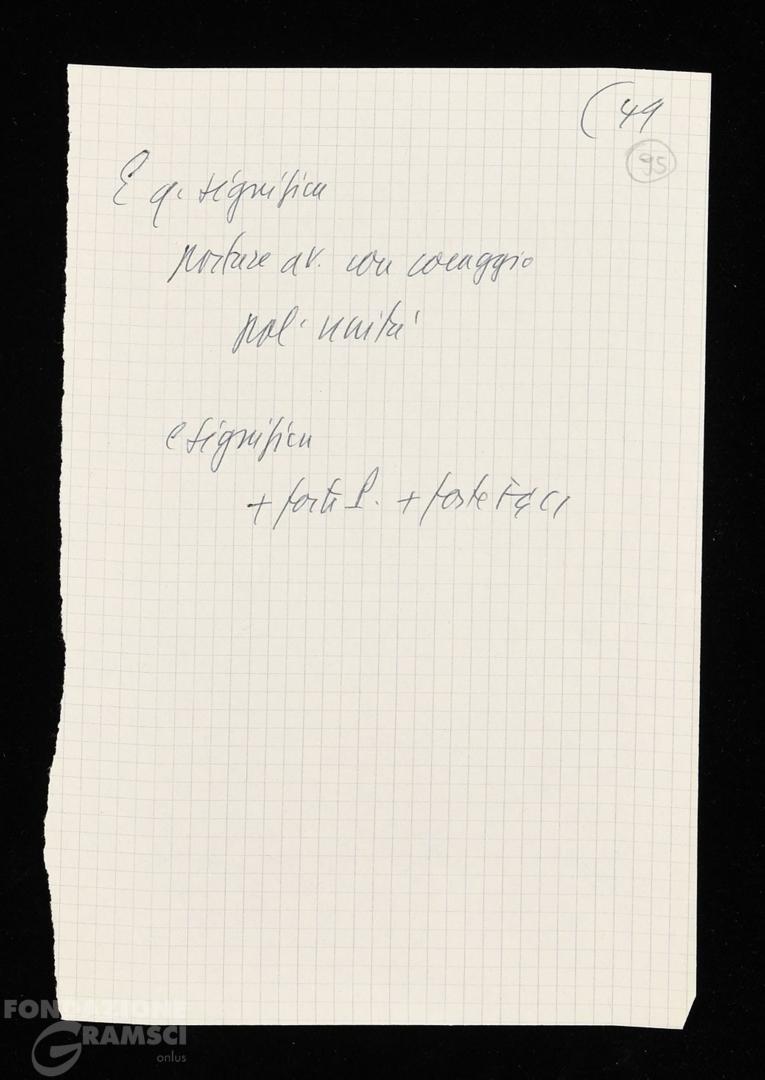 (49
95
E q. significa
portare av. con coraggio
pol. unità
e significa
+ forte P. + forte FGCI
FONDAZIONE
GRAMSCI
onlus